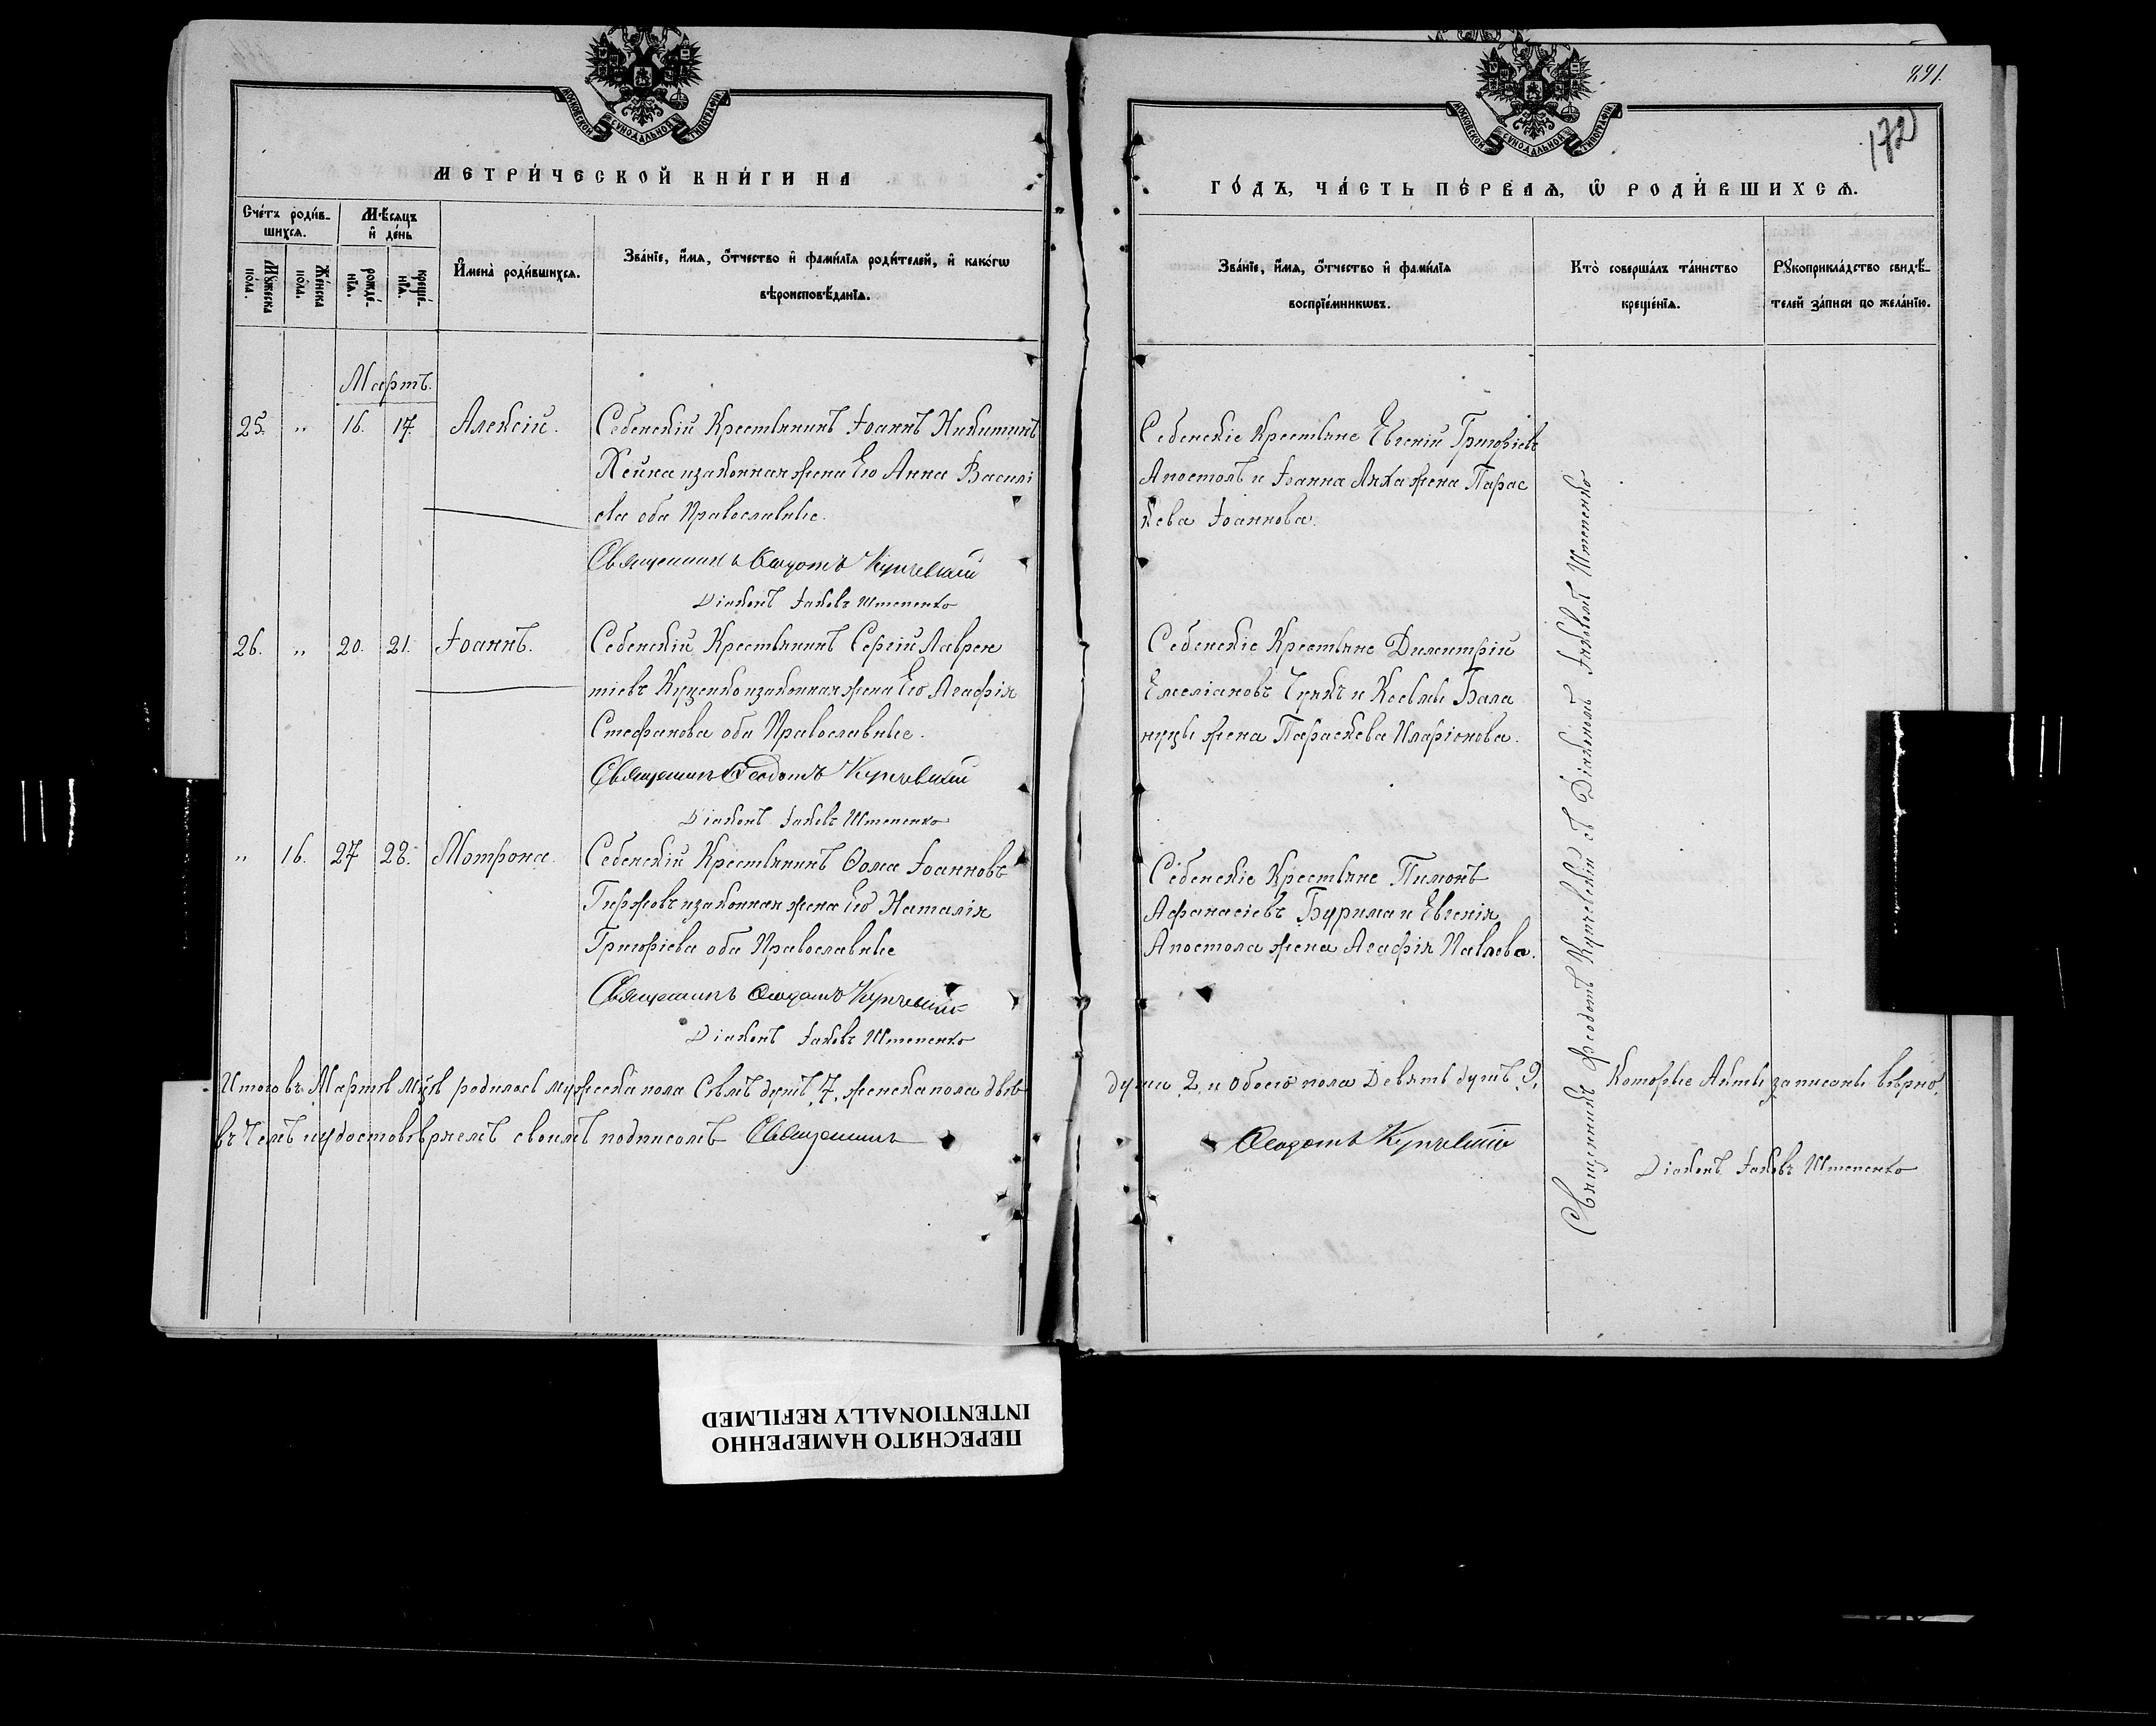 891.
172
МОСКОВСКОЙ СѴНОДАЛЬНОЙ ТИПОГРАФІИ
МОСКОВСКОЙ СѴНОДАЛЬНОЙ ТИПОГРАФІИ
МЕТРИ́ЧЕСКОЙ КНИ́ГИ НА
ГО́ДЪ, ЧА́СТЬ ПЕ́РВАѦ, Ѡ҆ РОДИ́ВШИХСѦ.
Сче́тъ роди́в-
шихсѧ.
Мꙋ́жеска
по́ла.
Же́нска
по́ла.
Мѣ́сѧцъ
и҆ де́нь
рожде́-
нїѧ.
креще́-
нїѧ.
И҆мена̀ роди́вшихсѧ.
Зва́нїе, и҆́мѧ, ѻ҆́тчество и҆ фами́лїѧ роди́телей, и҆ како́гѡ
вѣроисповѣ́данїѧ.
Зва́нїе, и҆́мѧ, ѻ҆́тчество и҆ фами́лїѧ
воспрїе́мникѡвъ.
Кто̀ соверша́лъ та́инство
креще́нїѧ.
Рꙋкоприкла́дство свидѣ́-
телей за́писи по жела́нїю.
Мартъ.
25. " 16. 17. Алексій.
Себенскій Крестьянинъ Іоаннъ Никитинъ
Хейна изаконная жена Его Анна Василі
ева оба Православные.
Священникъ Ѳеодотъ Купчевскій
Діаконъ Іаковъ Штепенко
Себенскіе Крестьяне Евгеній Григоріевъ
Апостолъ и Іоанна Ляха жена Парас
кева Іоаннова.
26. " 20. 21. Іоаннъ.
Себенскій Крестьянинъ Сергій Лаврен
тіевъ Куценко изаконная жена Его Агафія
Стефанова оба Православные.
Священникъ Ѳеодотъ Купчевскій
Діаконъ Іаковъ Штепенко
Себенскіе Крестьяне Димитрій
Емеліановъ и Косьмы Бала
нуцы жена Параскева Иларіонова.
" 16. 27 28. Мотрона.
Себенскій Крестьянинъ Ѳома Іоанновъ
изаконная жена Его Наталія
Григоріева оба Православные
Священникъ Ѳеодотъ Купчевскій
Діаконъ Іаковъ Штепенко
Себенскіе Крестьяне Пимонъ
Афанасіевъ Бурима и Евгенія
Апостола жена Агафія Павлова.
Священникъ Феодотъ Купчевскій съ Діакономъ Іаковомъ Штепенко
Итого въ Мартѣ мцѣ родилось мужеска пола Семь душъ 7. женска пола двѣ
душа 2. и обоего пола Девять душъ 9. Которые Акты записаны вѣрно,
въ Чемъ иудостовѣряемъ своимъ подписомъ Священникъ
Ѳеодотъ Купчевскій
Діаконъ Іаковъ Штепенко
ПЕРЕСНЯТО НАМЕРЕННО
INTENTIONALLY REFILMED